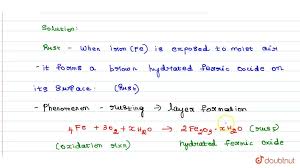 Solution:
Rust - When iron (Fe) is exposed to moist air
- it forms a brown hydrated ferric oxide on
its surface (Rust)
- Phenomenon - rusting → layer formation
4 Fe + 3O₂ + xH₂O → 2Fe₂O₃.xH₂O (rust)
(oxidation rxn) hydrated ferric oxide
doubtnut